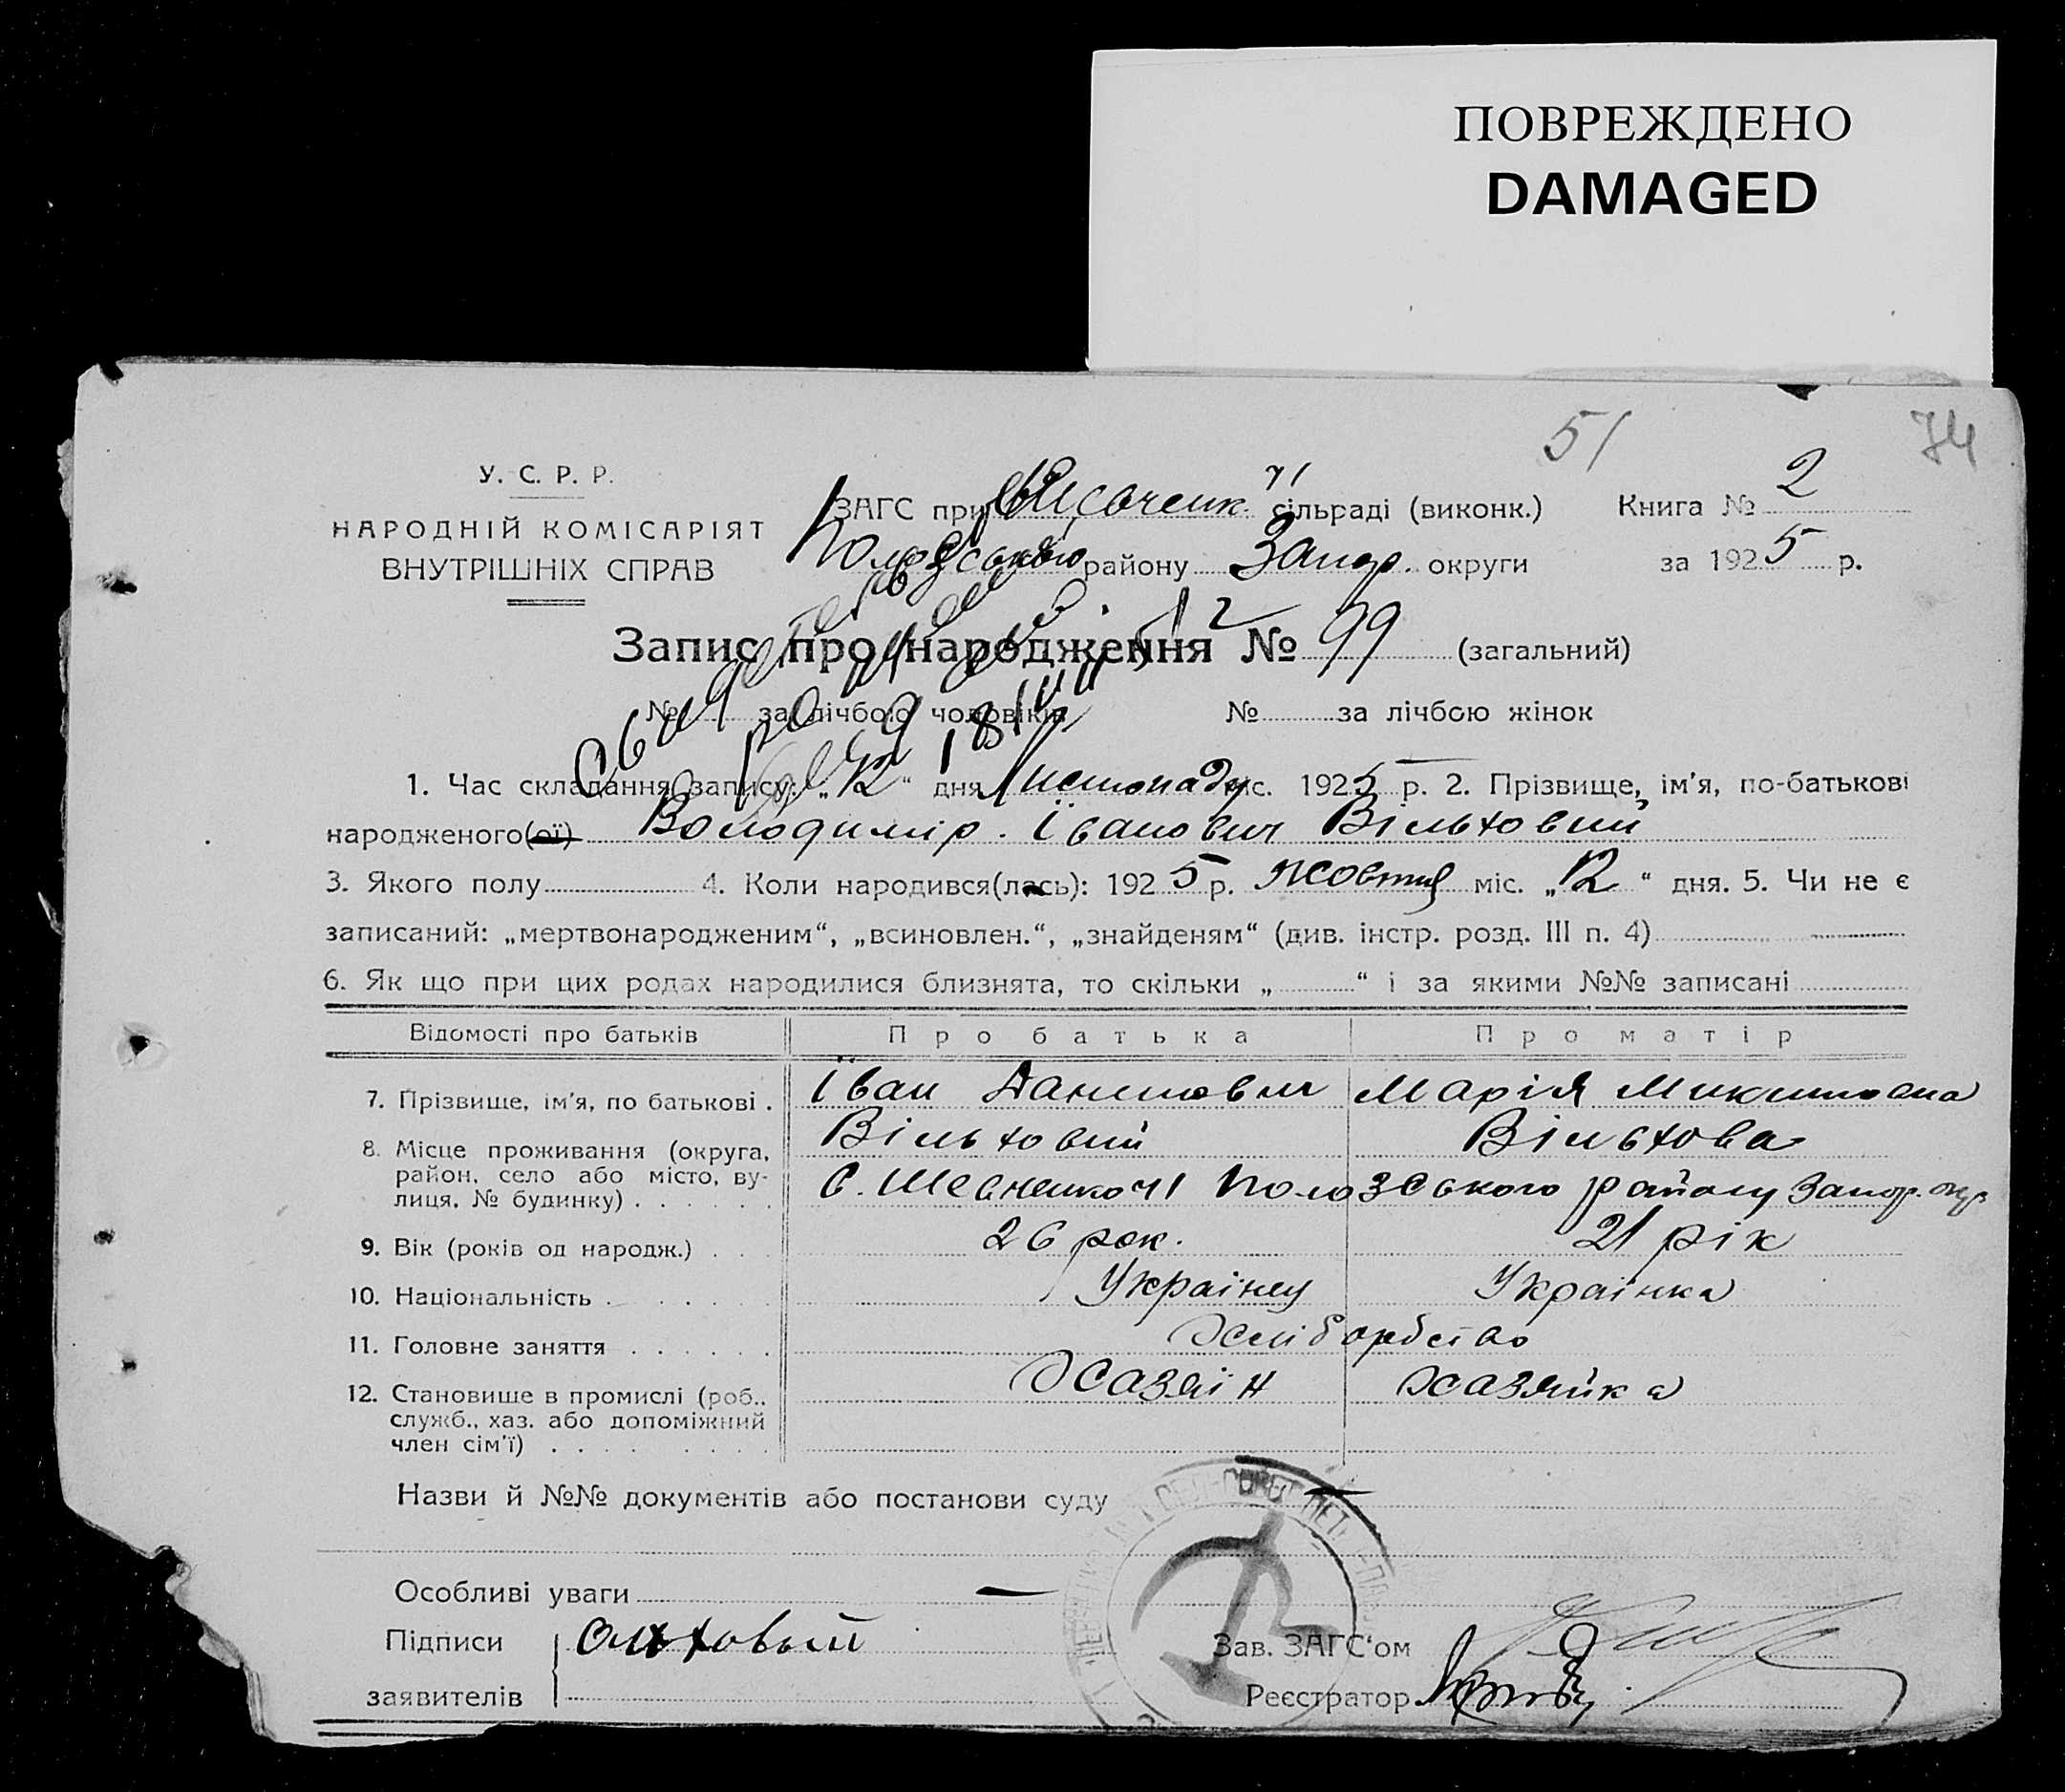 ПОВРЕЖДЕНО
DAMAGED
51
74
У. С. Р. Р.
НАРОДНІЙ КОМІСАРІЯТ
ВНУТРІШНІХ СПРАВ
ЗАГС при сільраді (виконк.)
району Запор. округи
Книга № 2
за 1925 р.
Запис про народження № 99 (загальний)
№ за лічбою чоловіків № за лічбою жінок
1. Час складання запису: „12“ дня Листопаду міс. 1925 р. 2. Прізвище, ім’я, по-батькові
народженого(ої) Володимір. Іванович Вільховий
3. Якого полу 4. Коли народився(лась): 1925 р. жовтня міс. „12“ дня. 5. Чи не є
записаний: „мертвонародженим“, „всиновлен.“, „знайденям“ (див. інстр. розд. III п. 4)
6. Як що при цих родах народилися близнята, то скільки „ “ і за якими №№ записані
Відомості про батьків Про батька Про матір
7. Прізвище, ім’я, по батькові . Їван Данилович Вільховий Марія Микитовна Вільхова
8. Місце проживання (округа,
район, село або місто, ву-
лиця, № будинку) С. Шевченко Полозського району Запор. окр.
9. Вік (років од народж.) 26 рок. 21 рік
10. Національність Українец Українка
11. Головне заняття Хліборобство
12. Становище в промислі (роб.,
служб., хаз. або допоміжний
член сім’ї) Хазяїн хазяйка
Назви й №№ документів або постанови суду —
Особливі уваги —
Підписи Ольховый
заявителів
Зав. ЗАГС‘ом
Реєстратор